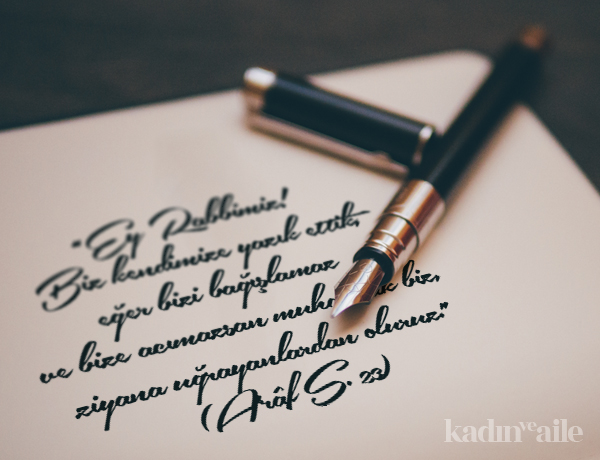 "Ey Rabbimiz!
Biz kendimize yazık ettik,
eğer bizi bağışlamaz
ve bize acımazsan biz,
ziyana uğrayanlardan oluruz."
(Arâf S. 23)
kadınveaile